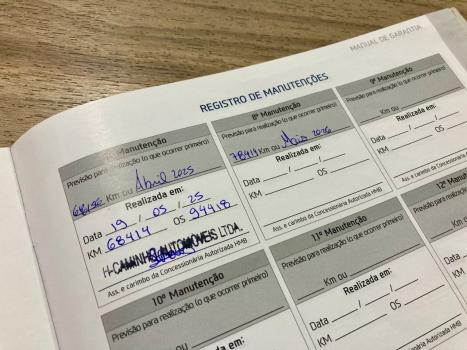 MANUAL DE GARANTIA
REGISTRO DE MANUTENÇÕES
Manutenção
Previsão para realização (o que ocorrer primeiro)
Km ou Abril 2025
Realizada em:
Data 19 / 05 / 25
KM 68414 OS 94418
H-CAMINHO AUTOMÓVEIS LTDA.
Ass. e carimbo da Concessionária Autorizada HMB
8ª Manutenção
Previsão para realização (o que ocorrer primeiro)
78414 Km ou Maio 2026
Realizada em:
Data / /
KM OS
Ass. e carimbo da Concessionária Autorizada HMB
9ª Manutenção
Previsão para realização (o que ocorrer primeiro)
Km ou
Realizada em:
Data / /
KM OS
Ass. e carimbo da Concessionária Autorizada HMB
10ª Manutenção
Previsão para realização (o que ocorrer primeiro)
Km ou
Realizada em:
11ª Manutenção
Previsão para realização (o que ocorrer primeiro)
Km ou
Realizada em:
Data / /
KM OS
12ª Manutenção
Previsão para realização
Km ou
Data
KM